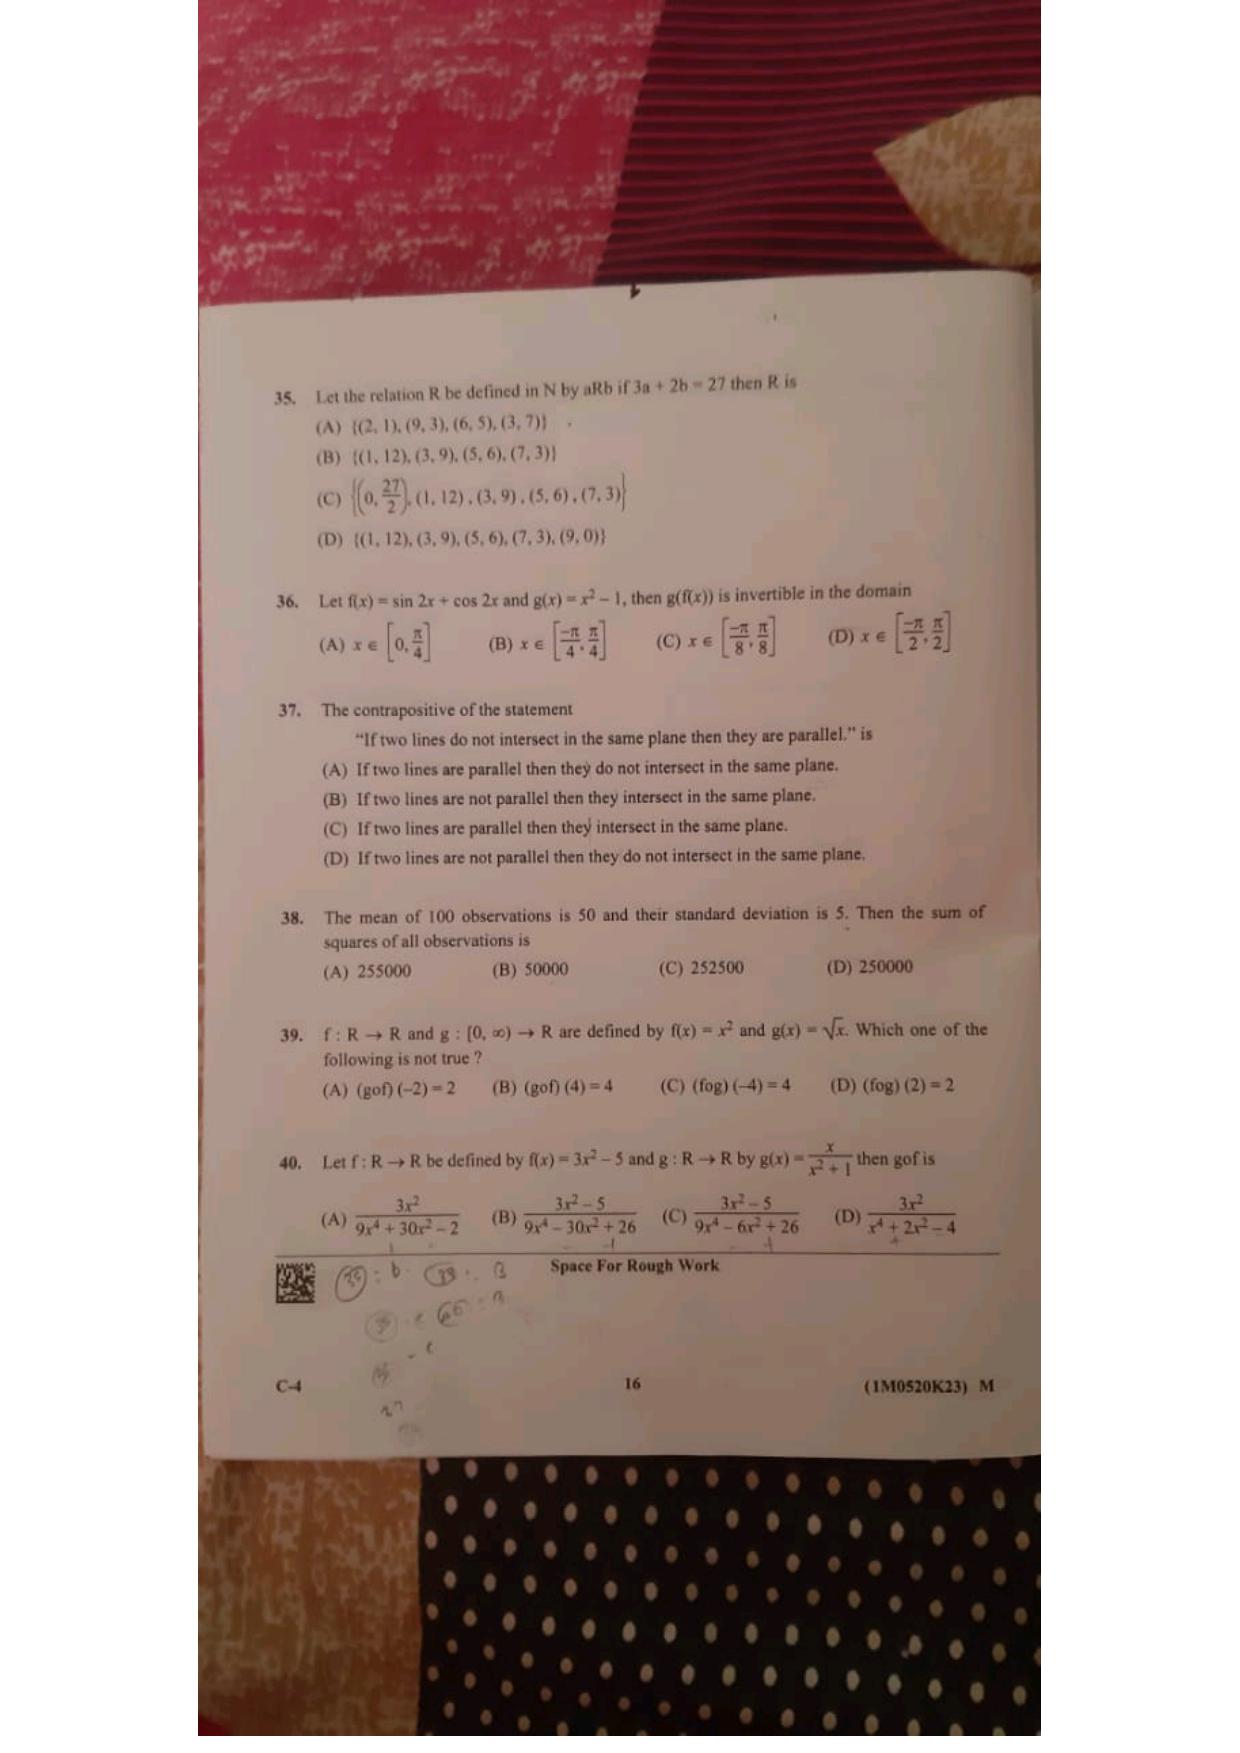 35. Let the relation R be defined in N by aRb if 3a + 2b = 27 then R is
(A) {(2, 1), (9, 3), (6, 5), (3, 7)}
(B) {(1, 12), (3, 9), (5, 6), (7, 3)}
(C) {(0, 27/2), (1, 12), (3, 9), (5, 6), (7, 3)}
(D) {(1, 12), (3, 9), (5, 6), (7, 3), (9, 0)}
36. Let f(x) = sin 2x + cos 2x and g(x) = x² – 1, then g(f(x)) is invertible in the domain
(A) x ∈ [0, π/4] (B) x ∈ [–π/4, π/4] (C) x ∈ [–π/8, π/8] (D) x ∈ [–π/2, π/2]
37. The contrapositive of the statement
"If two lines do not intersect in the same plane then they are parallel." is
(A) If two lines are parallel then they do not intersect in the same plane.
(B) If two lines are not parallel then they intersect in the same plane.
(C) If two lines are parallel then they intersect in the same plane.
(D) If two lines are not parallel then they do not intersect in the same plane.
38. The mean of 100 observations is 50 and their standard deviation is 5. Then the sum of
squares of all observations is
(A) 255000 (B) 50000 (C) 252500 (D) 250000
39. f : R → R and g : [0, ∞) → R are defined by f(x) = x² and g(x) = √x. Which one of the
following is not true ?
(A) (gof) (–2) = 2 (B) (gof) (4) = 4 (C) (fog) (–4) = 4 (D) (fog) (2) = 2
40. Let f : R → R be defined by f(x) = 3x² – 5 and g : R → R by g(x) = x/(x² + 1) then gof is
(A) 3x²/(9x⁴ + 30x² – 2) (B) (3x² – 5)/(9x⁴ – 30x² + 26) (C) (3x² – 5)/(9x⁴ – 6x² + 26) (D) 3x²/(x⁴ + 2x² – 4)
Space For Rough Work
C-4 16 (1M0520K23) M